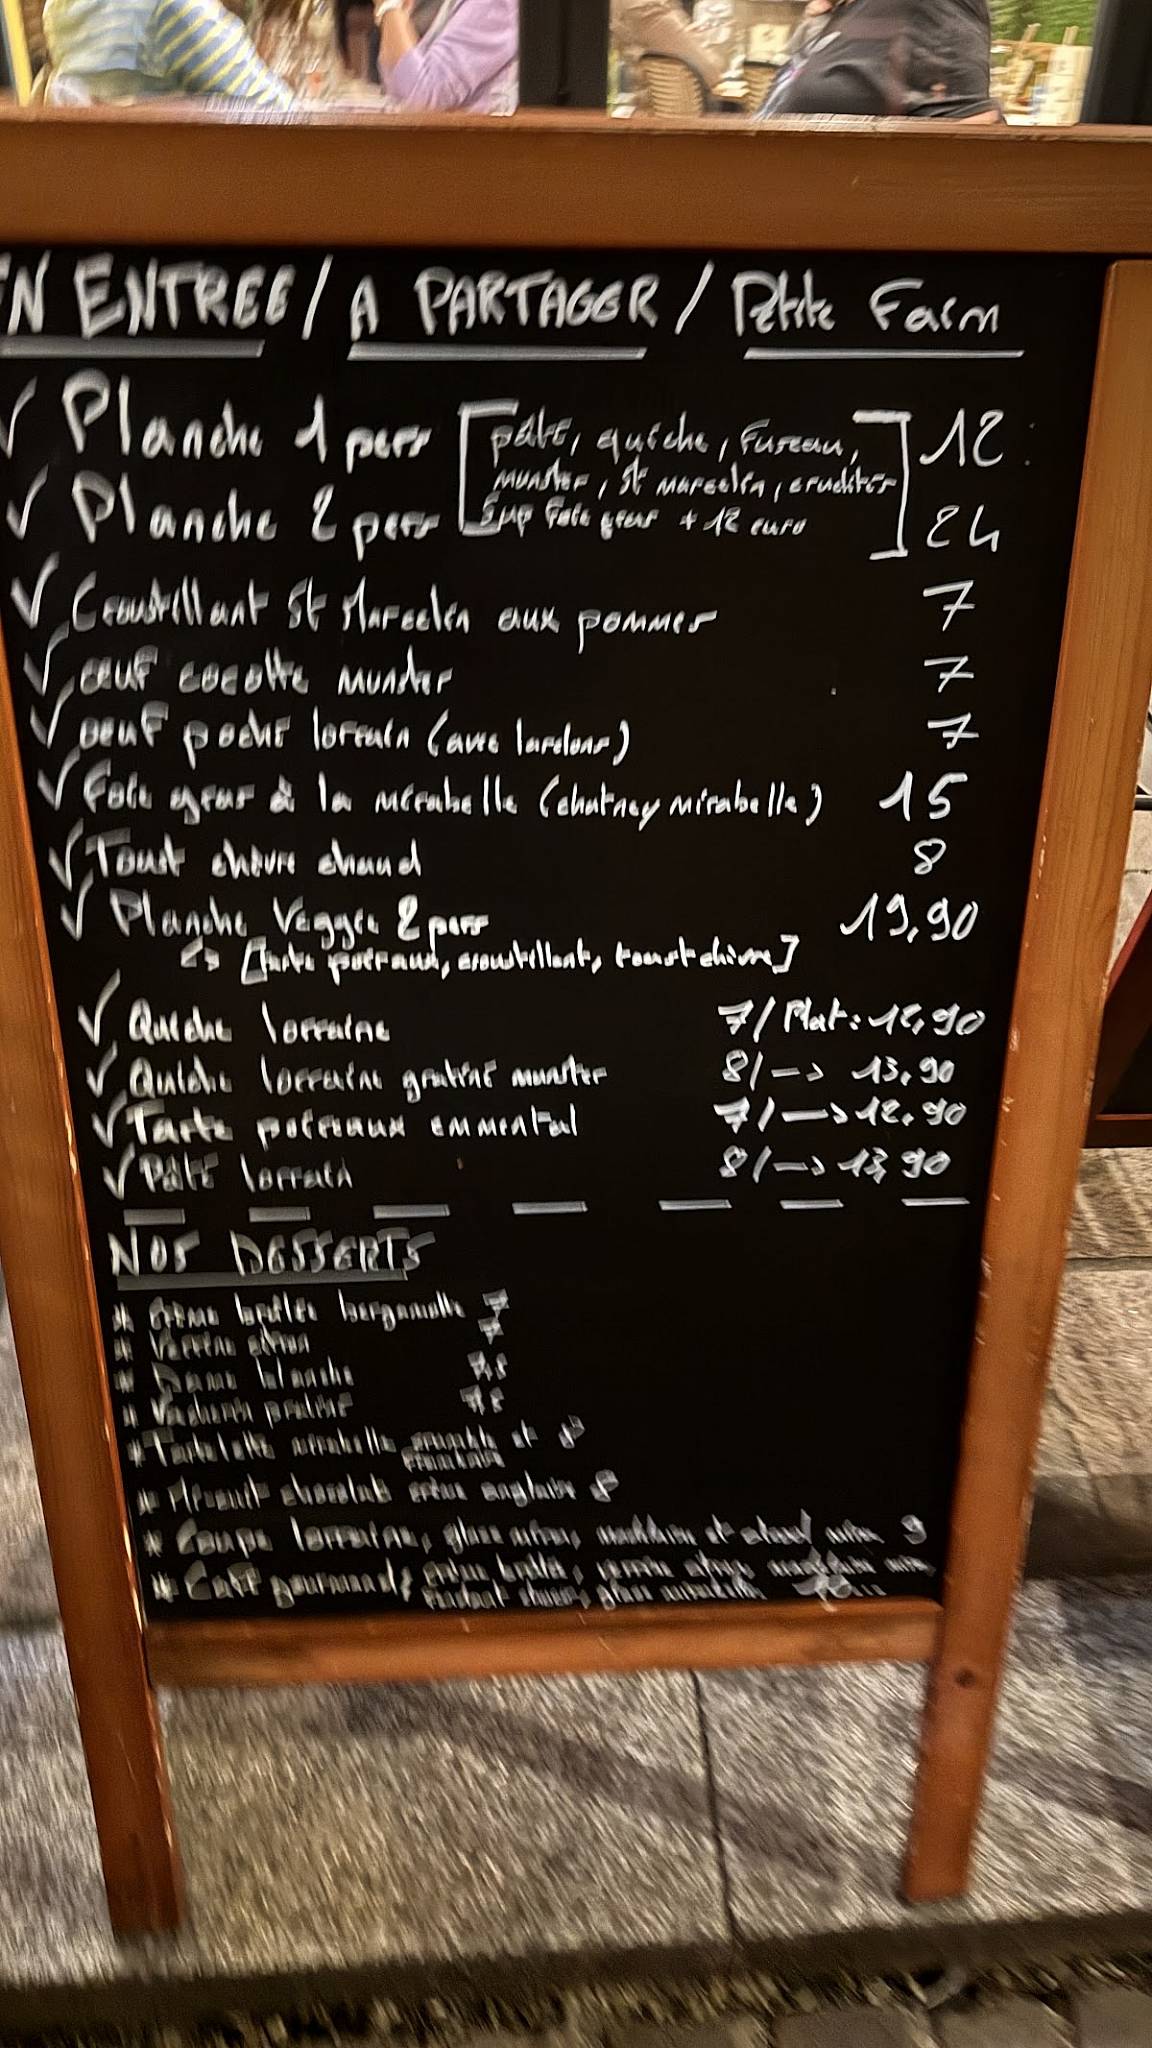 EN ENTREE / A PARTAGER / Petite Faim
✓ Planche 1 pers [pâté, quiche, fuseau, 12
munster, st marcelin, crudités
✓ Planche 2 pers Sup foie gras + 12 euro] 24
✓ Croustillant St Marcelin aux pommes 7
✓ œuf cocotte munster 7
✓ oeuf poché lorrain (avec lardons) 7
✓ Foie gras à la mirabelle (chutney mirabelle) 15
✓ Toast chèvre chaud 8
✓ Planche Veggie 2 pers 19,90
↳ [tarte poireaux, croustillant, toast chèvre]
✓ Quiche lorraine 7 / Plat : 12,90
✓ Quiche lorraine gratiné munster 8 / —> 13,90
✓ Tarte poireaux emmental 7 / —> 12,90
✓ Pâté lorrain 8 / —> 13,90
NOS DESSERTS
* Crème brûlée bergamotte 7
* Verrine citron 7
* Dame blanche 7,5
* Vacherin praliné
* Tartelette mirabelle et 8
* Moelleux chocolat crème anglaise 8
* Coupe lorraine, glace madeleine et 9
* Café gourmand, crème brûlée, verrine citron, madeleine